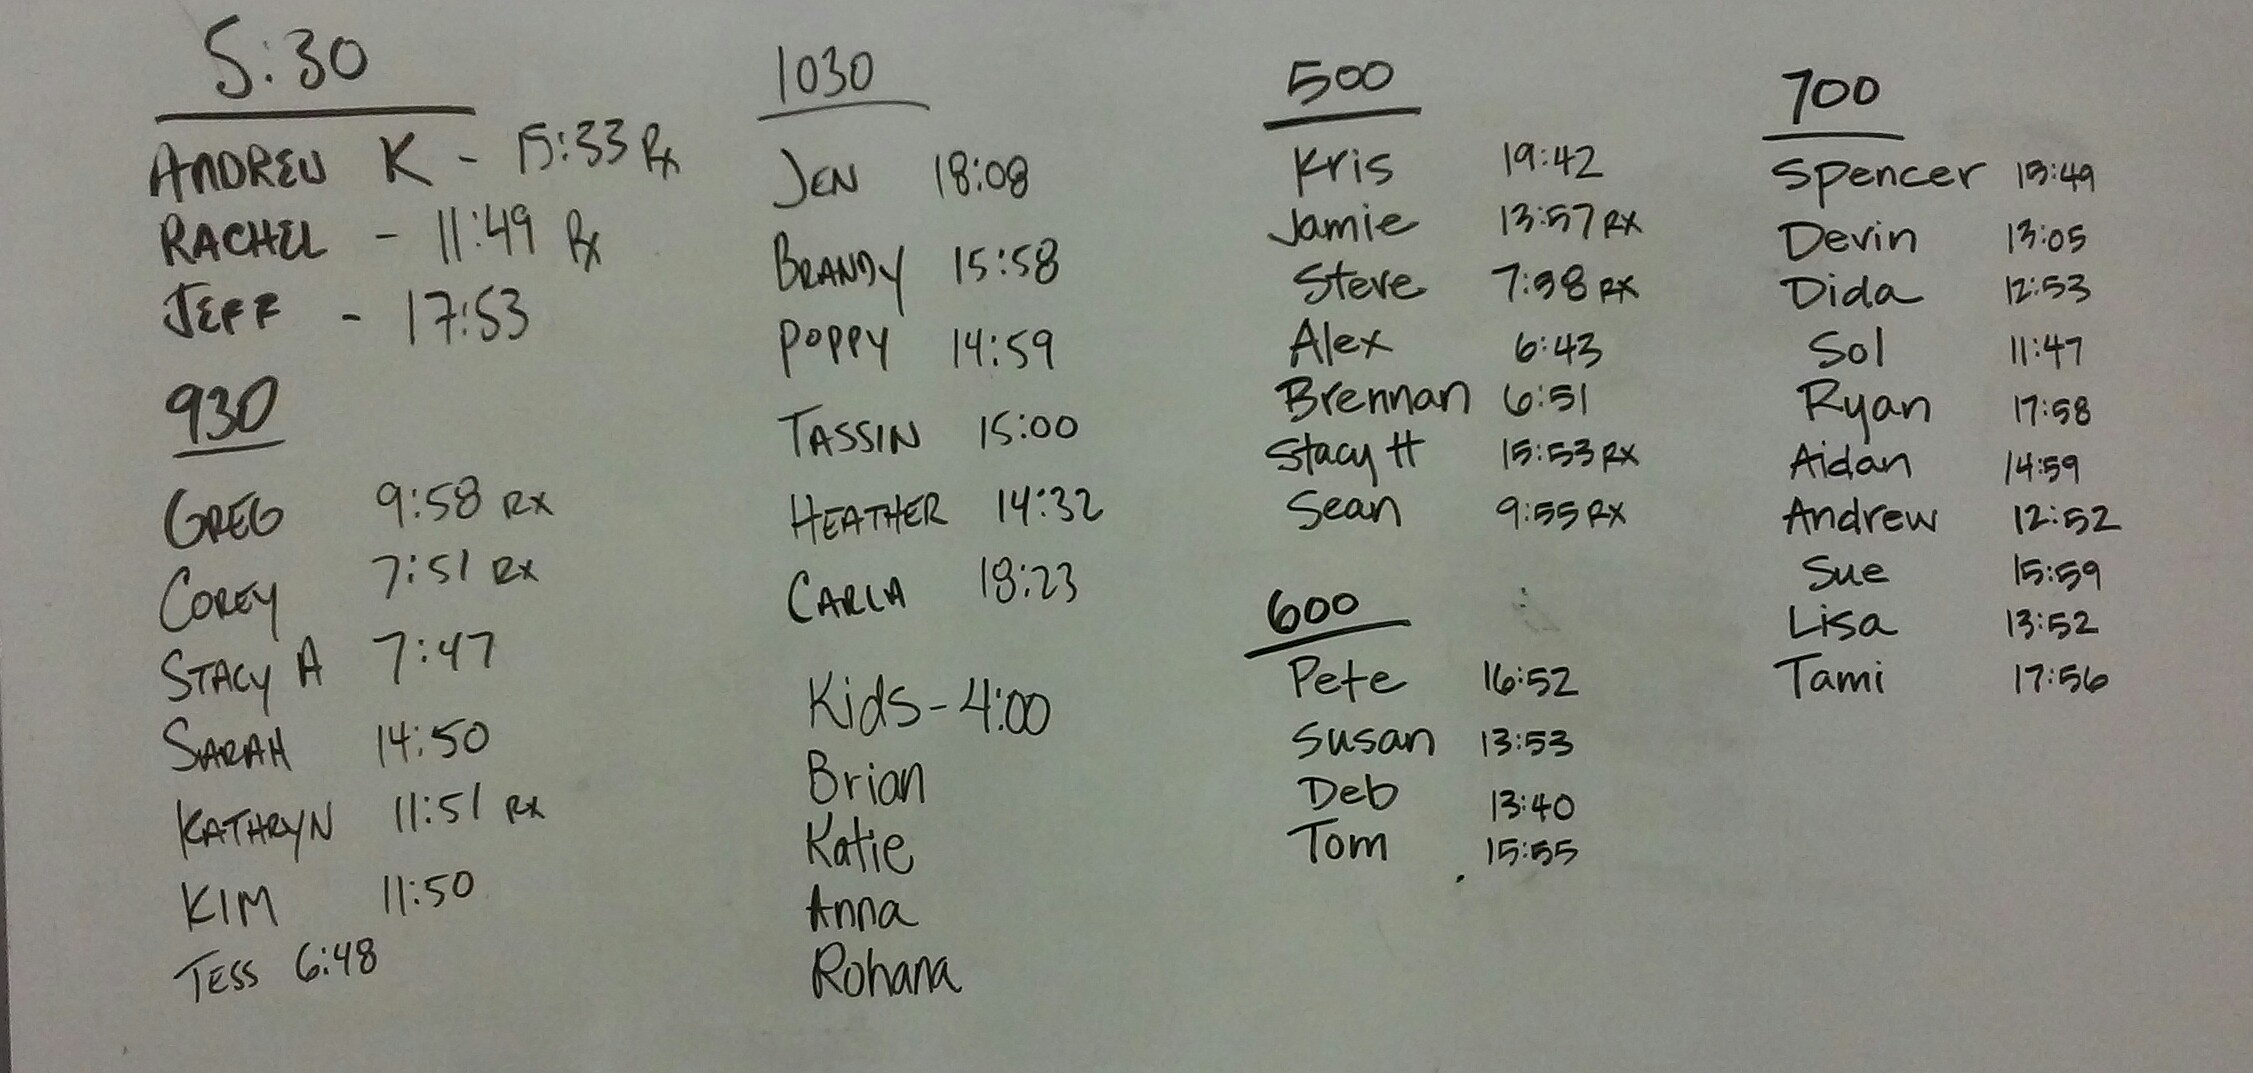 5:30
ANDREW K - 15:33 Rx
RACHEL - 11:49 Rx
JEFF - 17:53
930
GREG 9:58 RX
COREY 7:51 RX
STACY A 7:47
SARAH 14:50
KATHRYN 11:51 RX
KIM 11:50
TESS 6:48
1030
JEN 18:08
BRANDY 15:58
POPPY 14:59
TASSIN 15:00
HEATHER 14:32
CARLA 18:23
Kids - 4:00
Brian
Katie
Anna
Rohana
500
Kris 19:42
Jamie 13:57 RX
Steve 7:38 RX
Alex 6:43
Brennan 6:51
Stacy H 15:53 RX
Sean 9:55 RX
600
Pete 16:52
Susan 13:53
Deb 13:40
Tom 15:55
700
Spencer 13:49
Devin 13:05
Dida 12:53
Sol 11:47
Ryan 17:58
Aidan 14:59
Andrew 12:52
Sue 15:59
Lisa 13:52
Tami 17:56